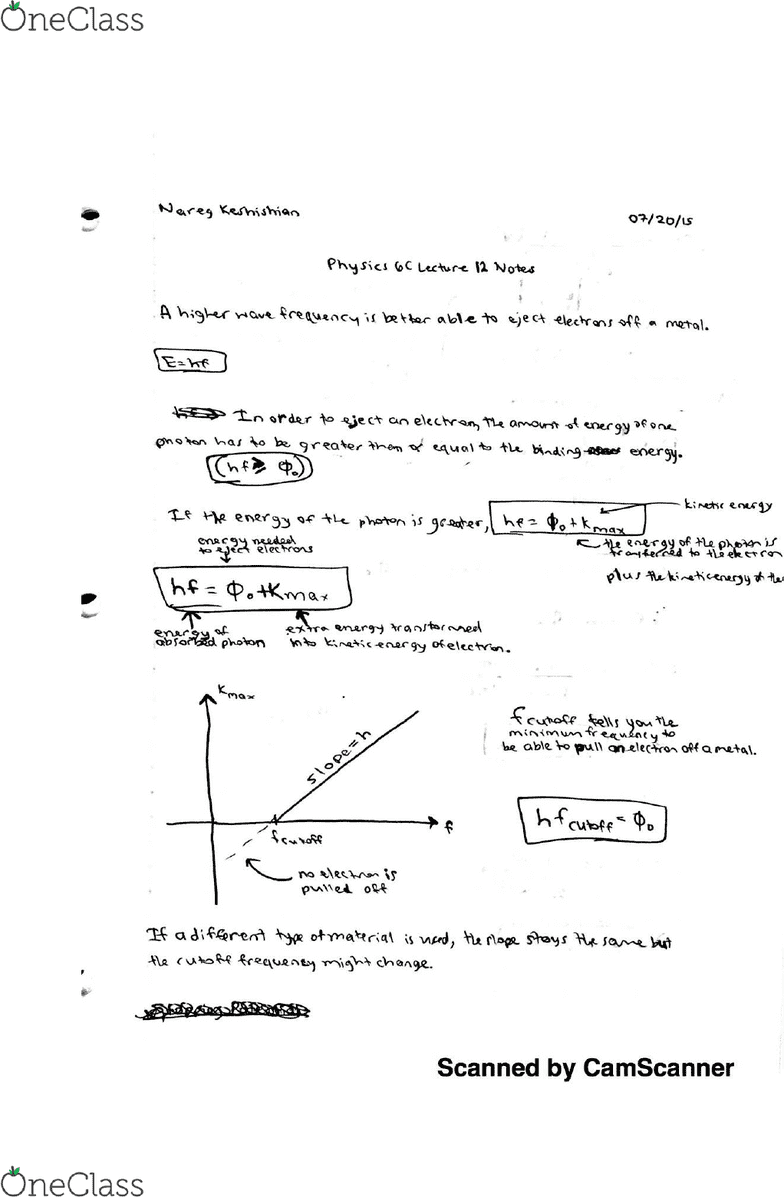 OneClass
Nareg Keshishian
07/20/15
Physics 6C Lecture 12 Notes
A higher wave frequency is better able to eject electrons off a metal.
E=hf
In order to eject an electron, the amount of energy of one
photon has to be greater than or equal to the binding energy.
(hf ≥ Φ₀)
If the energy of the photon is greater, hf = Φ₀ + Kmax
kinetic energy
the energy of the photon is
transferred to the electron
plus the kinetic energy of the
energy needed
to eject electrons
hf = Φ₀ + Kmax
energy of
absorbed photon
extra energy transformed
into kinetic energy of electron.
Kmax
slope=h
f
fcutoff
no electron is
pulled off
fcutoff tells you the
minimum frequency to
be able to pull an electron off a metal.
hfcutoff = Φ₀
If a different type of material is used, the slope stays the same but
the cutoff frequency might change.
Scanned by CamScanner
OneClass